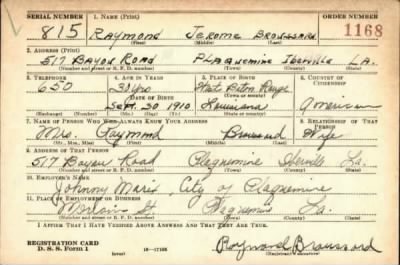 SERIAL NUMBER 1. NAME (Print) ORDER NUMBER
815 RAYMOND JEROME BROUSSARD 1168
(First) (Middle) (Last)
2. ADDRESS (Print)
517 BAYOU ROAD PLAQUEMINE IBERVILLE LA.
(Number and street or R. F. D. number) (Town) (County) (State)
3. TELEPHONE 4. AGE IN YEARS 5. PLACE OF BIRTH 6. COUNTRY OF CITIZENSHIP
650 30 yrs Baton Rouge
DATE OF BIRTH (Town or county)
Sept. 30 1910 Louisiana American
(Exchange) (Number) (Mo.) (Day) (Yr.) (State or country)
7. NAME OF PERSON WHO WILL ALWAYS KNOW YOUR ADDRESS 8. RELATIONSHIP OF THAT PERSON
Mrs. Raymond Broussard Wife
(Mr., Mrs., Miss) (First) (Middle) (Last)
9. ADDRESS OF THAT PERSON
517 Bayou Road Plaquemine Iberville La.
(Number and street or R. F. D. number) (Town) (County) (State)
10. EMPLOYER'S NAME
Johnny City of Plaquemine
11. PLACE OF EMPLOYMENT OR BUSINESS
St Plaquemine La.
(Number and street or R. F. D. number) (Town) (County) (State)
I AFFIRM THAT I HAVE VERIFIED ABOVE ANSWERS AND THAT THEY ARE TRUE.
REGISTRATION CARD
D. S. S. Form 1 16-17105 Raymond Broussard
(Registrant's signature)